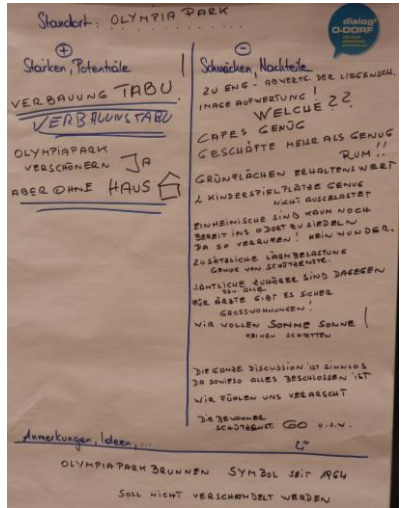 Standort: OLYMPIA PARK
dialog
O-DORF
+
Stärken, Potentiale
VERBAUUNG TABU
VERBAUUNSTABU
OLYMPIAPARK
VERSCHÖNERN JA
ABER OHNE HAUS
-
Schwächen, Nachteile
ZU ENG! ABWERTG. DER LIEGENSCH.
IMAGE AUFWERTUNG!
WELCHE??
CAFES GENÜG
GESCHÄFTE MEHR ALS GENUG
RUM!!
GRÜNFLÄCHEN ERHALTENSWERT
2 KINDERSPIELPLÄTZE GENUG
NICHT AUSGELASTET
EINHEIMISCHE SIND KAUM NOCH
BEREIT INS ODORF ZU SIEDELN
DA SO VERRUFEN! KEIN WUNDER.
ZUSÄTZLICHE LÄRMBELASTUNG
GENUG VON SCHÜTZENSTR.
SÄMTLICHE ZUHÖRER SIND DAGEGEN
FÜR ÄRZTE GIBT ES SICHER
GROSSWOHNUNGEN!
WIR WOLLEN SONNE SONNE!
KEINEN SCHATTEN
DIE GANZE DISCUSSION IST SINNLOS
DA SOWIESO ALLES BESCHLOSSEN IST
WIR FÜHLEN UNS VERARSCHT
DIE BEWOHNER
SCHÜTZENST. 60 U.S.W.
Anmerkungen, Ideen,...
OLYMPIAPARK BRUNNEN SYMBOL SEIT 1964
SOLL NICHT VERSCHANDELT WERDEN